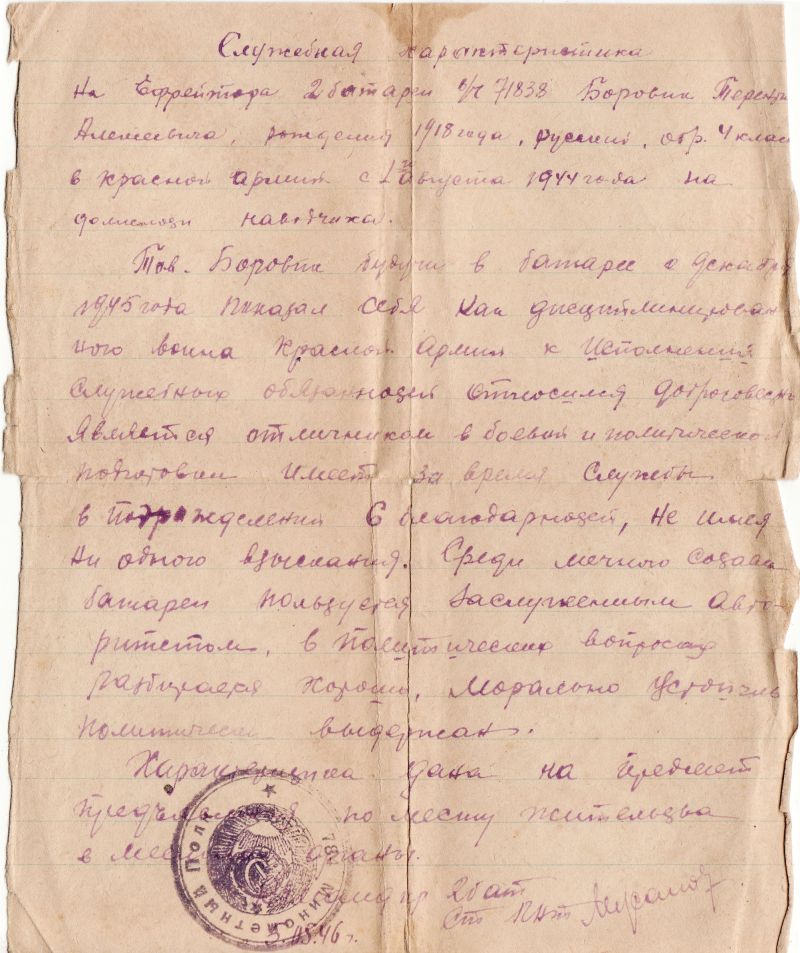 Служебная характеристика
На Ефрейтора 2 батареи в/ч 71838 Боровик Терентия
Алексеевича, рождения 1918 года, русский, обр. 4 клас
в красной армии с 1го августа 1944 года на
должности наводчика.
Тов. Боровик будучи в батарее с декабря
1945 года показал себя как дисциплинирован
ного воина Красной Армии к исполнений
служебных обязанностей относился добросовестн
Является отличником в боевой и политической
подготовки имеет за время службы
в подразделении 6 благодарностей, не имея
ни одного взыскания. Среди личного состава
батареи пользуется заслуженным авто-
ритетом, в политических вопросах
разбирается хорошо, морально устойчив
политически выдержан.
Характеристика дана на предмет
предъявления по месту жительства
в органы.
Командир 2 бат
Ст. л-нт
3.05.46 г.
787 Минометный Полк